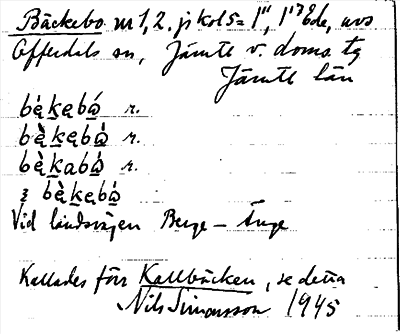 Bäckebo nr 1, 2. jk kol 5 = 1
Offerdals sn, Jämtl v. doms. tg
Jämtl län
bèkębò r.
bèkębò r.
bèkabò r.
bèkębò
Vid landsvägen Berge – Änge
Kallades förr Kallbäcken, se detta
Nils Simonsson 1945